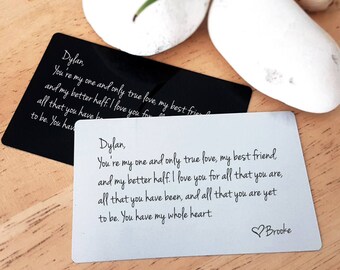 Dylan,
You're my one and only true love, my best friend,
and my better half. I love you for all that you are,
all that you have been
to be. You have
Dylan,
You're my one and only true love, my best friend,
and my better half. I love you for all that you are,
all that you have been, and all that you are yet
to be. You have my whole heart.
♡Brooke